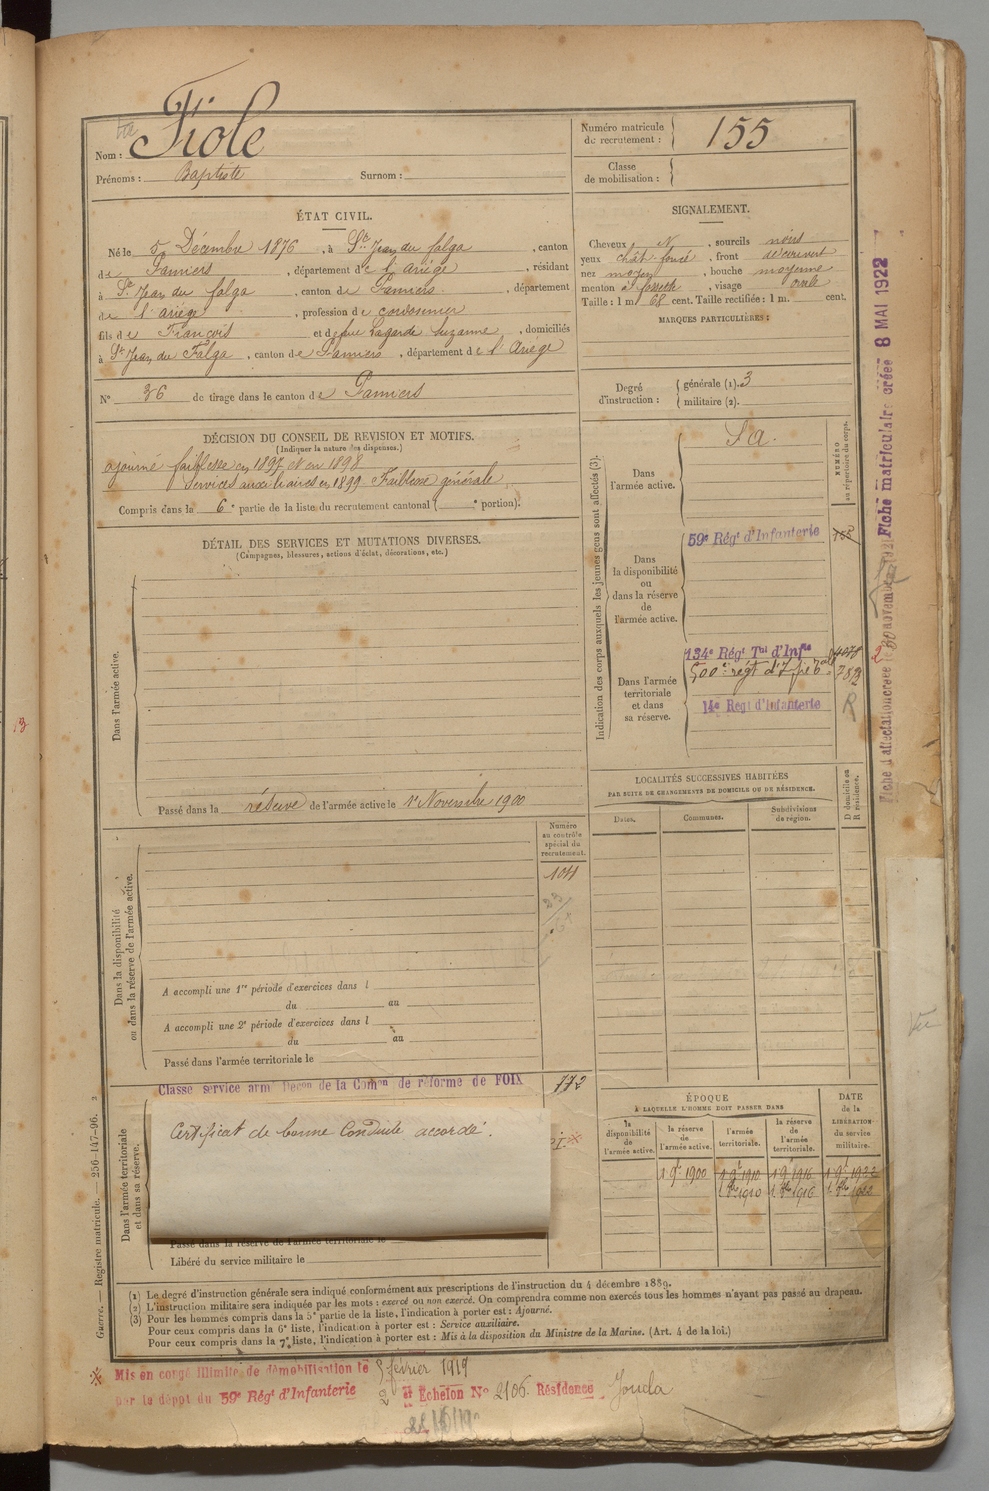 Nom : Fiole
Prénoms : Baptiste Surnom :
Numéro matricule de recrutement : 155
Classe de mobilisation :
ÉTAT CIVIL.
Né le 5 Décembre 1876, à St Jean du falga, canton
de Pamiers, département de l'Ariège, résidant
à St Jean du falga, canton de Pamiers, département
de l'ariège, profession de cordonnier
fils de François et de feue Lagarde Suzanne, domiciliés
à St Jean du Falga, canton de Pamiers, département de l'Ariège
N° 36 de tirage dans le canton de Pamiers
SIGNALEMENT.
Cheveux N, sourcils noirs
yeux chât-foncé, front découvert
nez moyen, bouche moyenne
menton à fossette, visage ovale
Taille : 1 m. 68 cent. Taille rectifiée : 1 m. cent.
MARQUES PARTICULIÈRES :
Degré d'instruction : générale (1). 3
militaire (2).
DÉCISION DU CONSEIL DE REVISION ET MOTIFS.
(Indiquer la nature des dispenses.)
ajourné faiblesse en 1897 et en 1898
Services auxiliaires en 1899 Faiblesse générale
Compris dans la 6e partie de la liste du recrutement cantonal ( e portion).
DÉTAIL DES SERVICES ET MUTATIONS DIVERSES.
(Campagnes, blessures, actions d'éclat, décorations, etc.)
Dans l'armée active.
Passé dans la réserve de l'armée active le 1er Novembre 1900
Indication des corps auxquels les jeunes gens sont affectés (3).
NUMÉRO au répertoire du corps.
Dans l'armée active. S A.
Dans la disponibilité ou dans la réserve de l'armée active.
59e Régt d'Infanterie 155
Dans l'armée territoriale et dans sa réserve.
134e Régt Tal d'Infie
500e régt d'Infie Tale 782
14e Régt d'Infanterie R
LOCALITÉS SUCCESSIVES HABITÉES
PAR SUITE DE CHANGEMENTS DE DOMICILE OU DE RÉSIDENCE.
Dates. Communes. Subdivisions de région. D domicile ou R résidence.
Numéro au contrôle spécial du recrutement.
1011
Dans la disponibilité ou dans la réserve de l'armée active.
A accompli une 1re période d'exercices dans l
du au
A accompli une 2e période d'exercices dans l
du au
Passé dans l'armée territoriale le
Classé service armé Décon de la Comon de réforme de FOIX 772
Dans l'armée territoriale et dans sa réserve.
Certificat de bonne Conduite accordé.
Passé dans la réserve de l'armée territoriale le
Libéré du service militaire le
ÉPOQUE
À LAQUELLE L'HOMME DOIT PASSER DANS
la disponibilité de l'armée active. la réserve de l'armée active. l'armée territoriale. la réserve de l'armée territoriale.
DATE de la LIBÉRATION du service militaire.
1 9e 1900 1 9e 1910 1 9e 1916 1 9e 1922
1 8bre 1910 1 8bre 1916 1 8bre 1922
(1) Le degré d'instruction générale sera indiqué conformément aux prescriptions de l'instruction du 4 décembre 1889.
(2) L'instruction militaire sera indiquée par les mots : exercé ou non exercé. On comprendra comme non exercés tous les hommes n'ayant pas passé au drapeau.
(3) Pour les hommes compris dans la 5e partie de la liste, l'indication à porter est : Ajourné.
Pour ceux compris dans la 6e liste, l'indication à porter est : Service auxiliaire.
Pour ceux compris dans la 7e liste, l'indication à porter est : Mis à la disposition du Ministre de la Marine. (Art. 4 de la loi.)
Mis en congé illimité de démobilisation le 5 février 1919
par le dépôt du 59e Régt d'Infanterie et Echelon No 2106. Résidence
Guerre. — Registre matricule. — 256-147-96.
Fiche d'affectation créée le 30 novembre 1921 Fiche matriculaire créée 8 MAI 1922